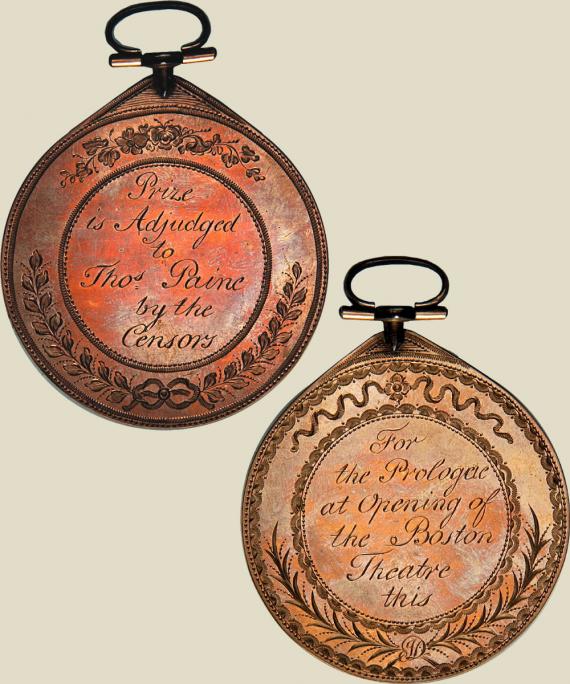 Prize
is Adjudged
to
Thos Paine
by the
Censors
For
the Prologue
at Opening of
the Boston
Theatre
this